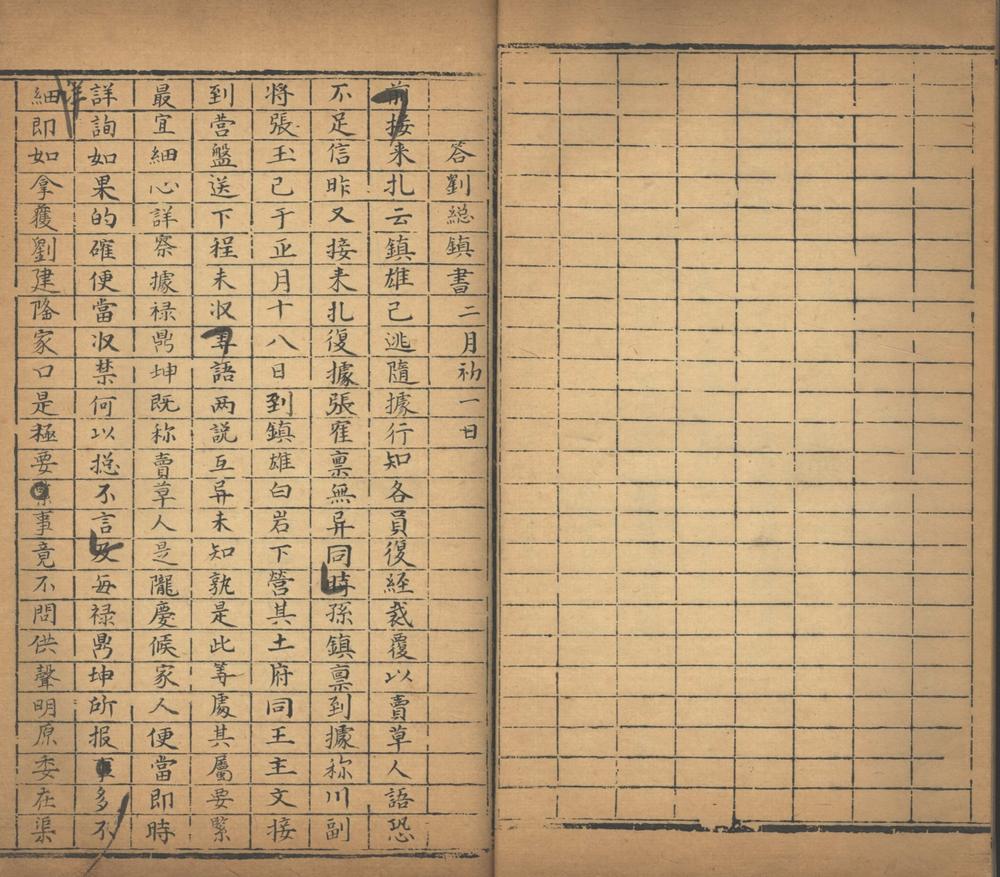 答劉総鎮書二月初一日
前接来扎云鎮雄已逃隨據行知各員復經裁覆以賣草人語恐
不足信昨又接来扎復據張寉禀無异同時孫鎮禀到據称川副
将張玉已于正月十八日到鎮雄白岩下营其土府同王主文接
到营盤送下程未収語两説互异未知孰是此等處其屬要緊
最宜細心詳察據禄鼎坤既称賣草人是隴慶候家人便當即時
詳詢如果的確便當収禁何以総不言及每禄鼎坤所报事多不
詳細即如拿獲劉建隆家口是極要緊事竟不問供聲明原委在渠